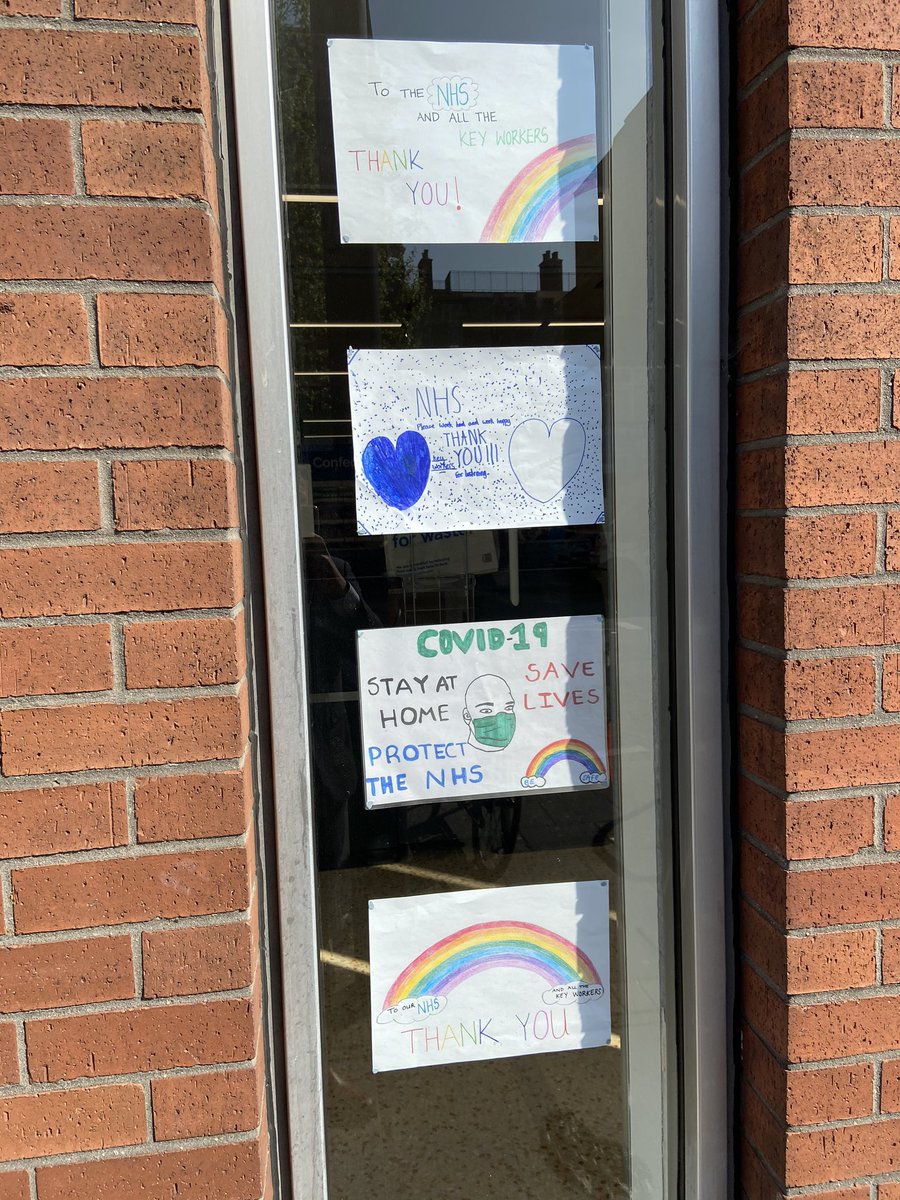 To THE NHS
AND ALL THE
KEY WORKERS
THANK
YOU!
NHS
Please work hard and work happy
THANK
YOU!!!
key
workers
for listening.
Confe
for waste
COVID-19
STAY AT
HOME
SAVE
LIVES
PROTECT
THE NHS
BE
TO OUR NHS
AND ALL THE
KEY WORKERS
THANK YOU